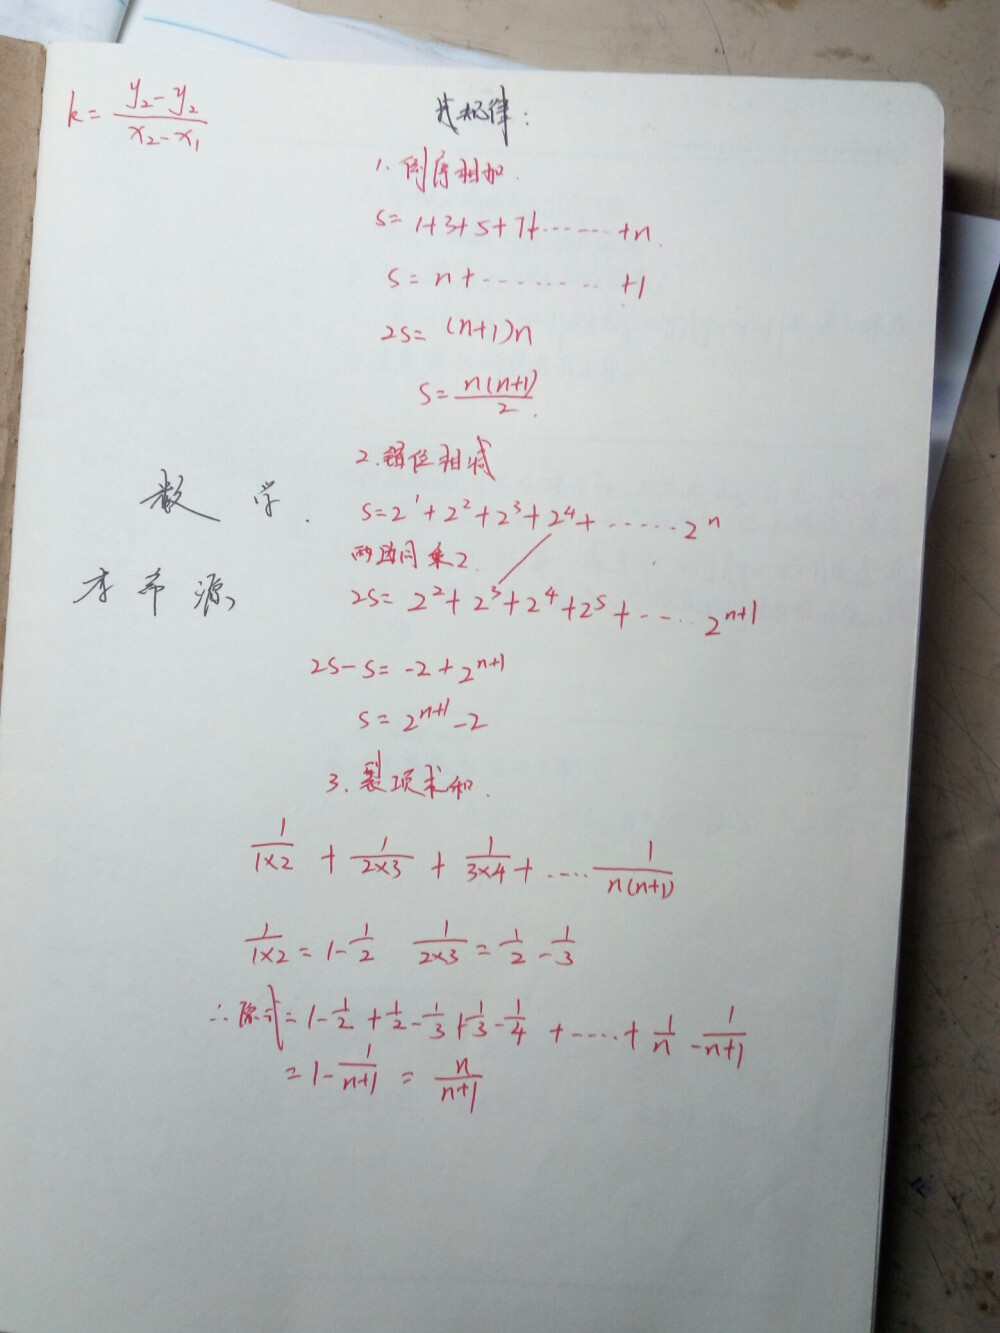 k = (y₂ - y₂)/(x₂ - x₁)
找规律：
1. 倒序相加.
S = 1+3+5+7+······+n.
S = n+········ +1
2S = (n+1)n
S = n(n+1)/2.
2. 错位相减
S = 2¹+2²+2³+2⁴+······2ⁿ
两边同乘2.
2S = 2²+2³+2⁴+2⁵+····2ⁿ⁺¹
数学.
李希源
2S-S = -2+2ⁿ⁺¹
S = 2ⁿ⁺¹-2
3. 裂项求和.
1/(1×2) + 1/(2×3) + 1/(3×4) + ···· 1/(n(n+1))
1/(1×2) = 1-1/2 1/(2×3) = 1/2-1/3
∴原式 = 1-1/2+1/2-1/3+1/3-1/4 +····+ 1/n - 1/(n+1)
= 1-1/(n+1) = n/(n+1)